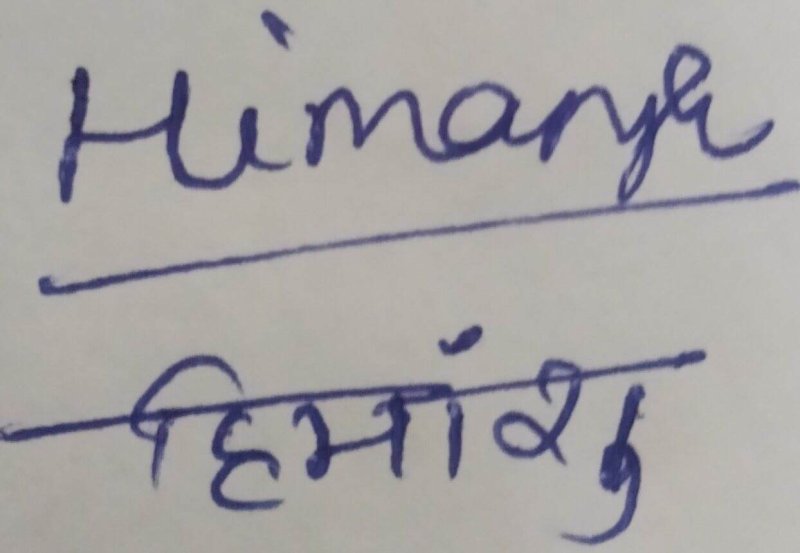 Himanshu
हिमांशु